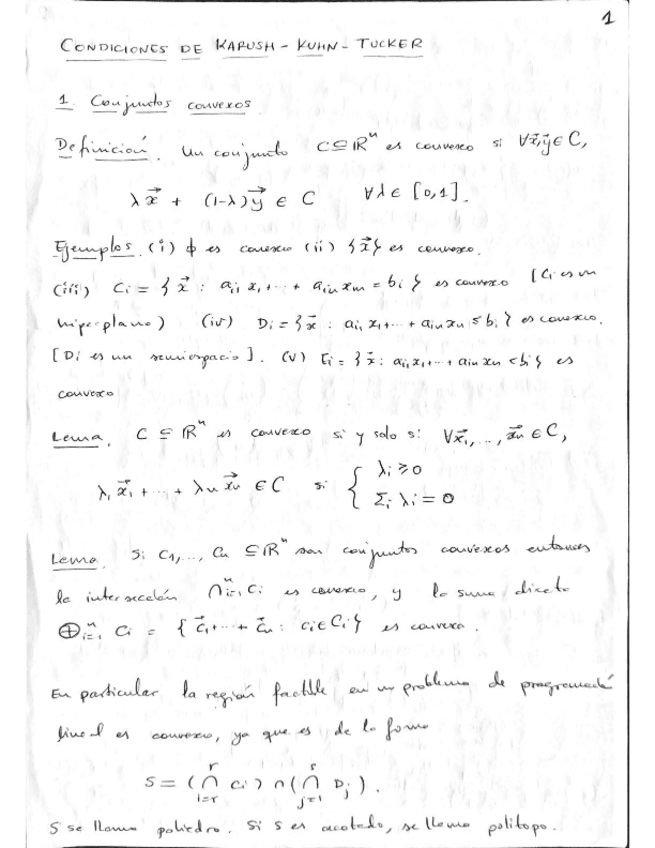 1
CONDICIONES DE KARUSH-KUHN-TUCKER
1. Conjuntos convexos
Definición. Un conjunto C ⊆ ℝⁿ es convexo si ∀x⃗,y⃗ ∈ C,
λx⃗ + (1-λ)y⃗ ∈ C ∀λ ∈ [0,1].
Ejemplos. (i) ϕ es convexo (ii) {x⃗} es convexo.
(iii) Ci = {x⃗ : ai₁x₁+⋯+ainxn = bi} es convexo [Ci es un
hiperplano) (iv) Di = {x⃗ : ai₁x₁+⋯+ainxn ≤ bi} es convexo.
[Di es un semiespacio]. (v) Ei = {x⃗ : ai₁x₁+⋯+ainxn < bi} es
convexo
Lema. C ⊆ ℝⁿ es convexo si y solo si ∀x⃗₁,..., x⃗n ∈ C,
λ₁x⃗₁ + ⋯ + λnx⃗n ∈ C si { λi ≥ 0
Σi λi = 0
Lema. Si C₁,..., Cn ⊆ ℝⁿ son conjuntos convexos entonces
la intersección ⋂ⁿi=1 Ci es convexo, y la suma directa
⊕ⁿi=1 Ci = {c⃗₁+⋯+c⃗n : ci ∈ Ci} es convexa.
En particular, la región factible en un problema de programación
lineal es convexo, ya que es de la forma
S = (⋂ʳi=r Ci) ∩ (⋂ˢj=1 Dj).
S se llama poliedro. Si S es acotado, se llama politopo.